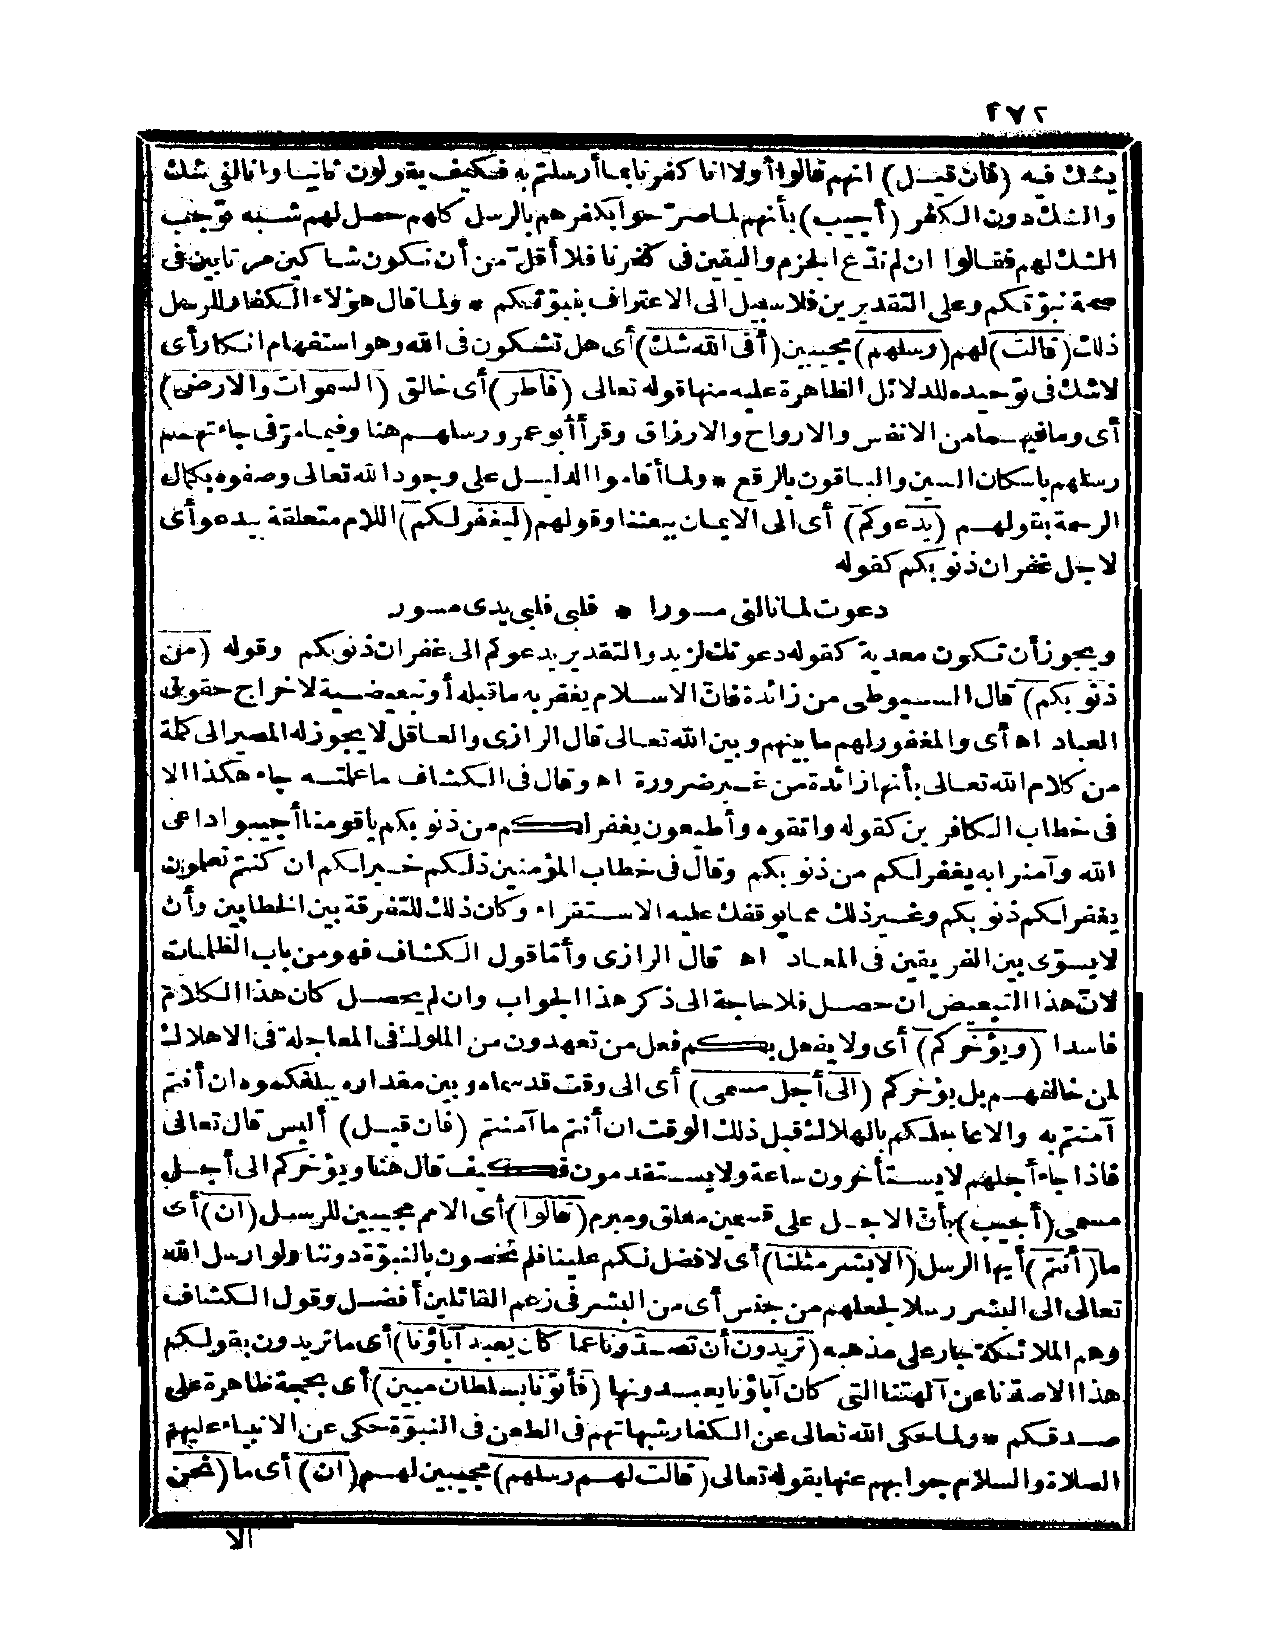 ١٧٢
يشك فيه (فان قيل) انهم قالوا أولا انا كفرنا بما أرسلتم به فكيف يقولون ثانيا وانا لفى شك
والشك دون الكفر (أجيب) بأنهم لما صرّحوا بكفرهم بالرسل كأنهم حصل لهم شبه توجب
الشك لهم فقالوا ان لم ندّع الجزم واليقين فى كفرنا فلا أقلّ من أن نكون شاكين مرتابين فى
صحة نبوّتكم وعلى التقديرين فلا سبيل الى الاعتراف بنبوّتكم * ولما قال هؤلاء الكفار للرسل
ذلك (قالت) لهم (رسلهم) مجيبين (أفى الله شك) أى هل تشكون فى الله وهو استفهام انكار أى
لا شك فى توحيده للدلائل الظاهرة عليه منها قوله تعالى (فاطر) أى خالق (السموات والارض)
أى وما فيهما من الانفس والارواح والارزاق وقرأ أبو عمرو رسلهم هنا وفيما مرّ فى جاءتهم
رسلهم باسكان السين والباقون بالرفع * ولما أقاموا الدليل على وجود الله تعالى وصفوه بكمال
الرحمة بقولهم (يدعوكم) أى الى الايمان ببعثنا وقولهم (ليغفر لكم) اللام متعلقة بيدعو أى
لاجل غفران ذنوبكم كقوله
دعوت لما نالنى مسورا * فلبى فلبى يدى مسور
ويجوز أن تكون معدية كقوله دعوتك لزيد والتقدير يدعوكم الى غفران ذنوبكم وقوله (من
ذنوبكم) قال السيوطى من زائدة فانّ الاسلام يغفر به ما قبله أو تبعيضية لاخراج حقوق
العباد اه أى والمغفور لهم ما بينهم وبين الله تعالى قال الرازى والعاقل لا يجوز له المصير الى كلمة
من كلام الله تعالى بأنها زائدة من غير ضرورة اه وقال فى الكشاف ما علمته جاء هكذا الا
فى خطاب الكافرين كقوله واتقوه وأطيعون يغفر لكم من ذنوبكم يا قومنا أجيبوا داعى
الله وآمنوا به يغفر لكم من ذنوبكم وقال فى خطاب المؤمنين ذلكم خير لكم ان كنتم تعلمون
يغفر لكم ذنوبكم وغير ذلك مما يوقفك عليه الاستقراء وكان ذلك للتفرقة بين الخطابين وأن
لا يسوّى بين الفريقين فى المعاد اه قال الرازى وأمّا قول الكشاف فهو من باب الطلمات
لانّ هذا التبعيض ان حصل فلا حاجة الى ذكر هذا الجواب وان لم يحصل كان هذا الكلام
فاسدا (ويؤخركم) أى ولا يفعل بكم فعل من تعهدون من الملوك فى المعاجلة فى الاهلاك
لمن خالفهم بل يؤخركم (الى أجل مسمى) أى الى وقت قد سماه وبين مقداره يبلغكموه ان أنتم
آمنتم به والا عاجلكم بالهلاك قبل ذلك الوقت ان أنتم ما آمنتم (فان قيل) أليس قال تعالى
فاذا جاء أجلهم لا يستأخرون ساعة ولا يستقدمون فكيف قال هنا ويؤخركم الى أجل
مسمى (أجيب) بأنّ الاجل على قسمين معلق ومبرم (قالوا) أى الامم مجيبين للرسل (ان) أى
ما (أنتم) أيها الرسل (الا بشر مثلنا) أى لا فضل لكم علينا فلم تخصون بالنبوّة دوننا ولو ارسل الله
تعالى الى البشر رسلا لجعلهم من جنس أى من البشر فى زعم القائلين أفضل وقول الكشاف
وهم الملائكة جار على مذهبه (تريدون أن تصدّونا عما كان يعبد آباؤنا) أى ما تريدون بقولكم
هذا الا صدّنا عن آلهتنا التى كان آباؤنا يعبدونها (فأتونا بسلطان مبين) أى بحجة ظاهرة على
صدقكم * ولما حكى الله تعالى عن الكفار شبهاتهم فى الطعن فى النبوّة حكى عن الانبياء عليهم
الصلاة والسلام جوابهم عنها بقوله تعالى (قالت لهم رسلهم) مجيبين لهم (ان) أى ما (نحن
الا